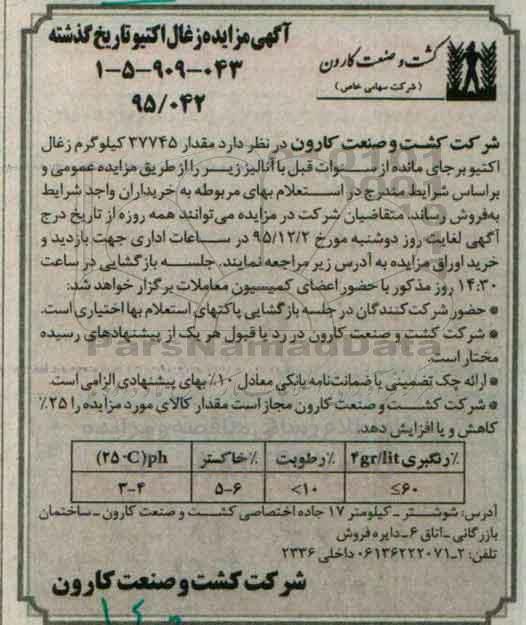 کشت و صنعت کارون
(شرکت سهامی خاص)
آگهی مزایده زغال اکتیو تاریخ گذشته
۱-۵-۹۰۹-۰۴۳
۹۵/۰۴۲
شرکت کشت و صنعت کارون در نظر دارد مقدار ۳۷۷۴۵ کیلوگرم زغال
اکتیو برجای مانده از سنوات قبل با آنالیز زیر را از طریق مزایده عمومی و
براساس شرایط مندرج در استعلام بهای مربوطه به خریداران واجد شرایط
به‌فروش رساند. متقاضیان شرکت در مزایده می‌توانند همه روزه از تاریخ درج
آگهی لغایت روز دوشنبه مورخ ۹۵/۱۲/۲ در ساعات اداری جهت بازدید و
خرید اوراق مزایده به آدرس زیر مراجعه نمایند. جلسه بازگشایی در ساعت
۱۴:۳۰ روز مذکور با حضور اعضای کمیسیون معاملات برگزار خواهد شد:
* حضور شرکت‌کنندگان در جلسه بازگشایی پاکتهای استعلام بها اختیاری است.
* شرکت کشت و صنعت کارون در رد یا قبول هر یک از پیشنهادهای رسیده
مختار است.
* ارائه چک تضمینی یا ضمانت‌نامه بانکی معادل ۱۰٪ بهای پیشنهادی الزامی است.
* شرکت کشت و صنعت کارون مجاز است مقدار کالای مورد مزایده را ۲۵٪
کاهش و یا افزایش دهد.
٪رنگبری ۴gr/lit ٪رطوبت ٪خاکستر ph(۲۵°C)
≤۶۰ <۱۰ ۵-۶ ۳-۴
آدرس: شوشتر - کیلومتر ۱۷ جاده اختصاصی کشت و صنعت کارون - ساختمان
بازرگانی - اتاق ۶ - دایره فروش
تلفن: ۲-۰۶۱۳۶۲۲۲۰۷۱ داخلی ۲۳۳۶
شرکت کشت و صنعت کارون
ParsNamadData